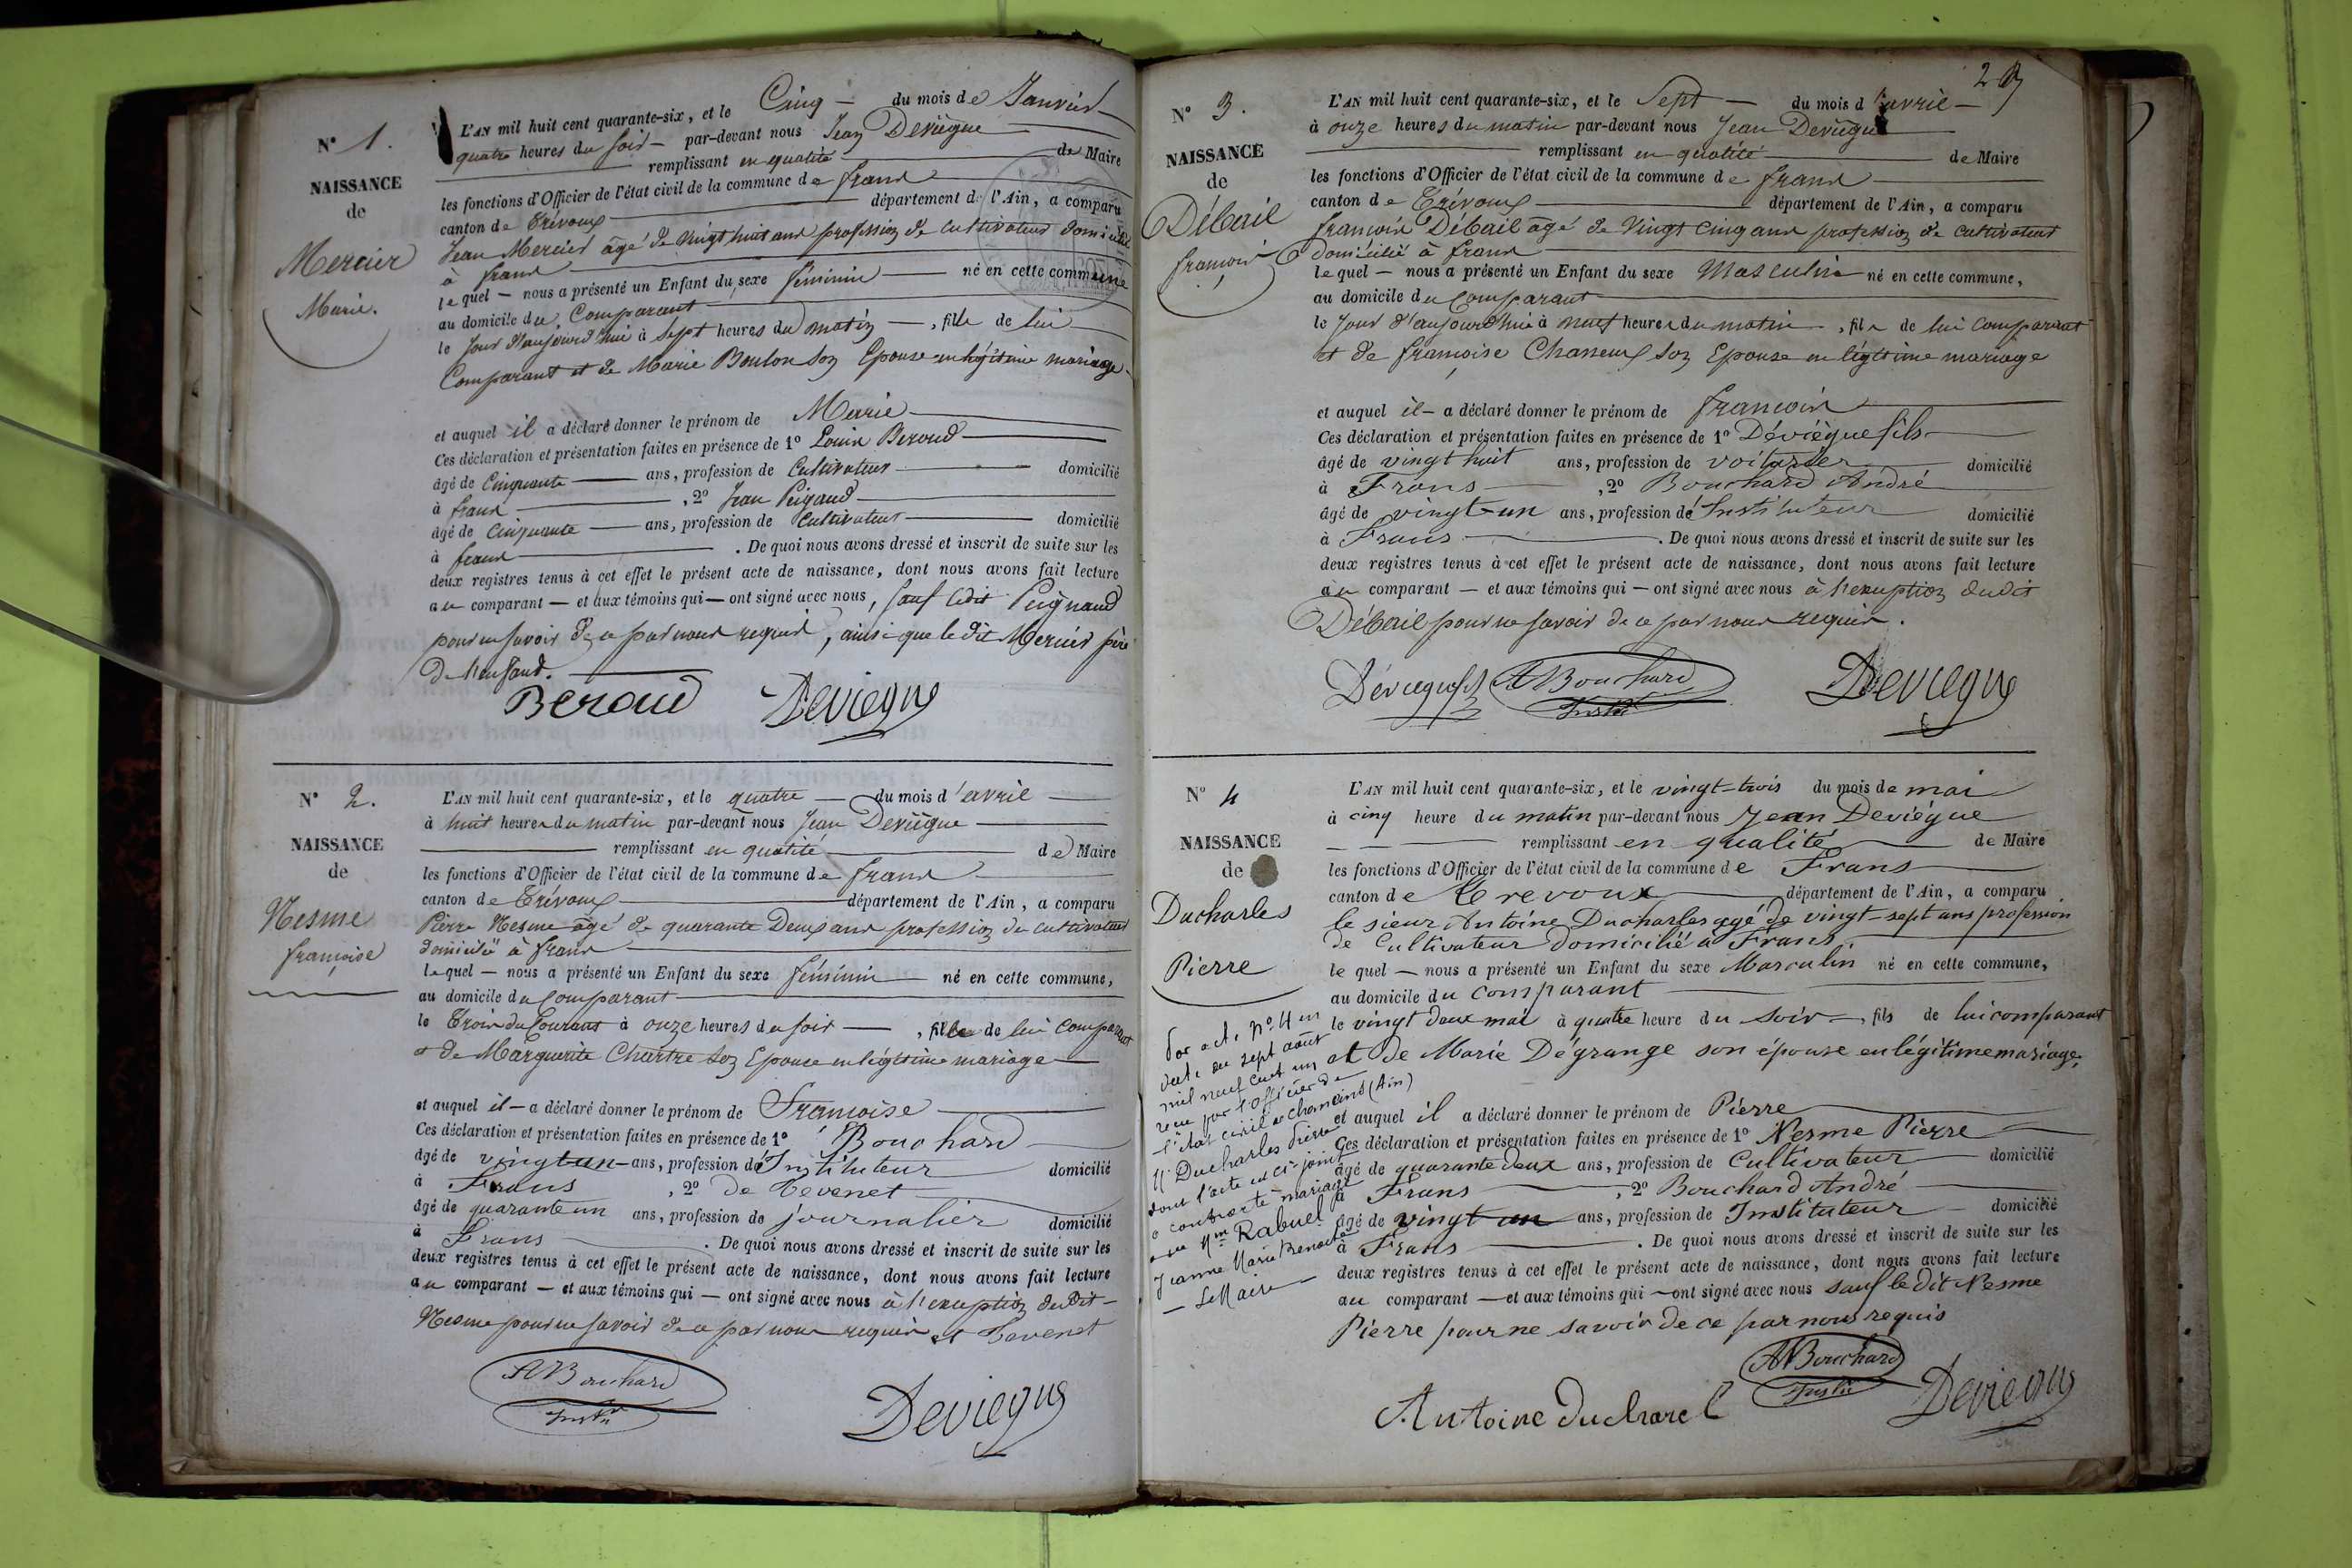 N° 1.
NAISSANCE
de
Mercier
Marie.
L'AN mil huit cent quarante-six, et le Cinq du mois de Janvier
quatre heures du soir par-devant nous Jean Devïègue
remplissant en qualité de Maire
les fonctions d'Officier de l'état civil de la commune de frans
canton de Trévoux département de l'Ain, a comparu
Jean Mercier âgé de vingt huit ans profession de cultivateur domicilié
à frans
lequel — nous a présenté un Enfant du sexe féminin né en cette commune
au domicile du Comparant
le jour d'aujourd'hui à Sept heures du matin, fille de lui
Comparant et de Marie Boulon son Epouse en légitime mariage
et auquel il a déclaré donner le prénom de Marie
Ces déclaration et présentation faites en présence de 1° Louis Beroud
âgé de Cinquante ans, profession de Cultivateur domicilié
à frans, 2° Jean Peignaud
âgé de Cinquante ans, profession de Cultivateur domicilié
à frans. De quoi nous avons dressé et inscrit de suite sur les
deux registres tenus à cet effet le présent acte de naissance, dont nous avons fait lecture
au comparant — et aux témoins qui — ont signé avec nous, sauf ledit Peignaud
pour ne savoir de ce par nous requis, ainsi que le dit Mercier père
de l'enfant.
Beroud Devïegue
N° 2.
NAISSANCE
de
Nesme
françoise
L'AN mil huit cent quarante-six, et le quatre du mois d'avril
à huit heures du matin par-devant nous Jean Devïègue
remplissant en qualité de Maire
les fonctions d'Officier de l'état civil de la commune de frans
canton de Trévoux département de l'Ain, a comparu
Pierre Nesme âgé de quarante Deux ans profession de cultivateur
domicilié à frans
lequel — nous a présenté un Enfant du sexe féminin né en cette commune,
au domicile du Comparant
le Trois du Courant à onze heures du soir, fille de lui comparant
et de Marguerite Chartre son Epouse en légitime mariage
et auquel il — a déclaré donner le prénom de Françoise
Ces déclaration et présentation faites en présence de 1° Bouchard
âgé de vingt-un ans, profession d'Instituteur domicilié
à Frans, 2° de Tevenet
âgé de quarante un ans, profession de journalier domicilié
à Frans. De quoi nous avons dressé et inscrit de suite sur les
deux registres tenus à cet effet le présent acte de naissance, dont nous avons fait lecture
au comparant — et aux témoins qui — ont signé avec nous à l'exception dudit
Nesme pour ne savoir de ce par nous requis et Tevenet
A Bouchard
Instr
Deviegue
23
N° 3.
NAISSANCE
de
Débail
françois
L'AN mil huit cent quarante-six, et le Sept du mois d'avril
à onze heures du matin par-devant nous Jean Devïègue
remplissant en qualité de Maire
les fonctions d'Officier de l'état civil de la commune de frans
canton de Trévoux département de l'Ain, a comparu
françois Débail âgé de Vingt Cinq ans profession de cultivateur
domicilié à frans
lequel — nous a présenté un Enfant du sexe Masculin né en cette commune,
au domicile du Comparant
le jour d'aujourd'hui à neuf heures du matin, fils de lui comparant
et de françoise Chaneux son Epouse en légitime mariage
et auquel il — a déclaré donner le prénom de françois
Ces déclaration et présentation faites en présence de 1° Dévièque fils
âgé de vingt huit ans, profession de voiturier domicilié
à Frans, 2° Bouchard André
âgé de vingt-un ans, profession d'Instituteur domicilié
à Frans. De quoi nous avons dressé et inscrit de suite sur les
deux registres tenus à cet effet le présent acte de naissance, dont nous avons fait lecture
au comparant — et aux témoins qui — ont signé avec nous à l'exception dudit
Débail pour ne savoir de ce par nous requis.
Dévieguefils A Bouchard Deviegue
Instr
N° 4
NAISSANCE
de
Ducharles
Pierre
L'AN mil huit cent quarante-six, et le vingt-trois du mois de mai
à cinq heure du matin par-devant nous Jean Deviégue
remplissant en qualité de Maire
les fonctions d'Officier de l'état civil de la commune de Frans
canton de Trevoux département de l'Ain, a comparu
le sieur Antoine Ducharles agé de vingt-sept ans profession
de Cultivateur domicilié à Frans.
le quel — nous a présenté un Enfant du sexe Masculin né en cette commune,
au domicile du comparant
le vingt deux mai à quatre heure du soir, fils de lui comparant
et de Marie Dégrange son épouse en légitime mariage.
et auquel il a déclaré donner le prénom de Pierre
Ces déclaration et présentation faites en présence de 1° Nesme Pierre
âgé de quarante deux ans, profession de Cultivateur domicilié
à Frans, 2° Bouchard André
âgé de vingt un ans, profession de Instituteur domicilié
à Frans. De quoi nous avons dressé et inscrit de suite sur les
deux registres tenus à cet effet le présent acte de naissance, dont nous avons fait lecture
au comparant — et aux témoins qui — ont signé avec nous sauf le dit Nesme
Pierre pour ne savoir de ce par nous requis
A Bouchard
Instr
Antoine ducharel Deviegue
Par acte N° 4 en
date du sept août
mil neuf cent un
reçu par l'officier de
l'état civil de Chaneins (Ain)
Mr Ducharles Pierre
dont l'acte est ci-joint
a contracté mariage
avec Mme Rabuel
Jeanne Marie Benoite
— Le Maire —